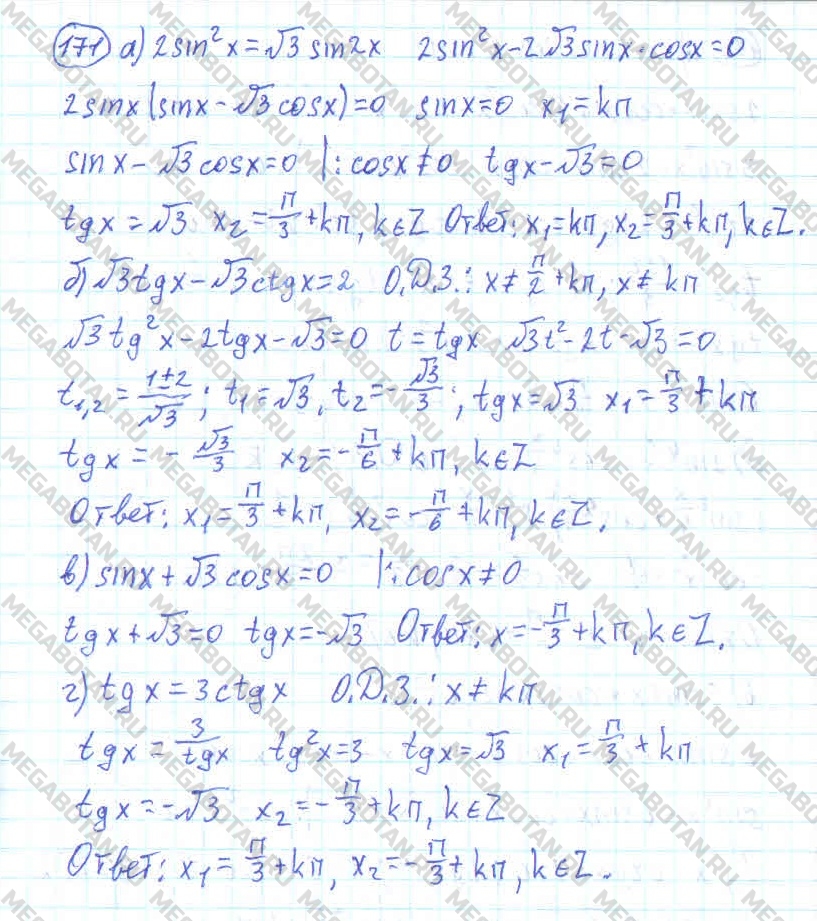 171 а) 2sin²x=√3 sin2x 2sin²x-2√3sinx·cosx=0
2sinx(sinx-√3cosx)=0 sinx=0 x₁=kπ
sinx-√3cosx=0 |:cosx≠0 tgx-√3=0
tgx=√3 x₂=π/3+kπ, k∈Z Ответ: x₁=kπ, x₂=π/3+kπ, k∈Z.
б) √3tgx-√3ctgx=2 О.Д.З.: x≠π/2+kπ, x≠kπ
√3tg²x-2tgx-√3=0 t=tgx √3t²-2t-√3=0
t₁,₂=(1±2)/√3; t₁=√3, t₂=-√3/3; tgx=√3 x₁=π/3+kπ
tgx=-√3/3 x₂=-π/6+kπ, k∈Z
Ответ: x₁=π/3+kπ, x₂=-π/6+kπ, k∈Z.
в) sinx+√3cosx=0 |:cosx≠0
tgx+√3=0 tgx=-√3 Ответ: x=-π/3+kπ, k∈Z.
г) tgx=3ctgx О.Д.З.: x≠kπ
tgx=3/tgx tg²x=3 tgx=√3 x₁=π/3+kπ
tgx=-√3 x₂=-π/3+kπ, k∈Z
Ответ: x₁=π/3+kπ, x₂=-π/3+kπ, k∈Z.
MEGABOTAN.RU